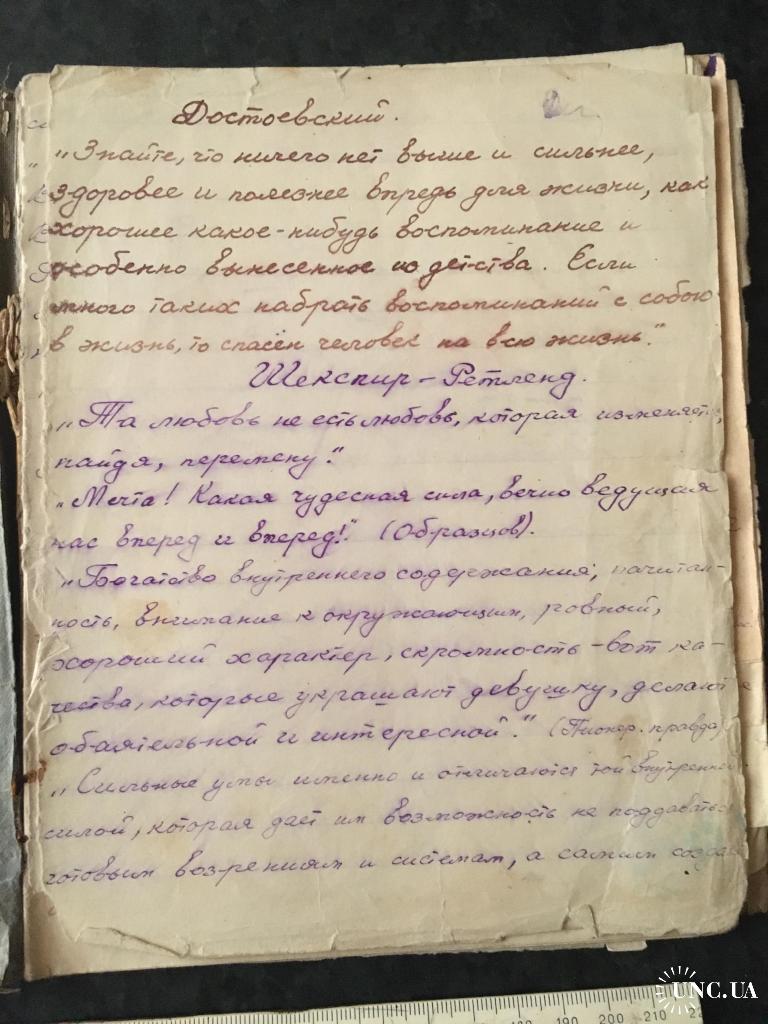 Достоевский.
„Знайте, что ничего нет выше и сильнее,
здоровее и полезнее впредь для жизни, как
хорошее какое-нибудь воспоминание и
особенно вынесенное из детства. Если
много таких набрать воспоминаний с собою
в жизнь, то спасён человек на всю жизнь."
Шекспир – Ретленд.
„Та любовь не есть любовь, которая изменяет,
найдя, перемену."
„Мечта! Какая чудесная сила, вечно ведущая
нас вперед и вперед!" (Образцов).
„Богатство внутреннего содержания, начитан-
ность, внимание к окружающим, ровный,
хороший характер, скромность – вот ка-
чества, которые украшают девушку, делают
обаятельной и интересной." (Пионер. правда)
„Сильные умы именно и отличаются той внутренней
силой, которая дает им возможность не поддаваться
готовым воззрениям и системам, а самим созда
UNC.UA
190 200 210 220